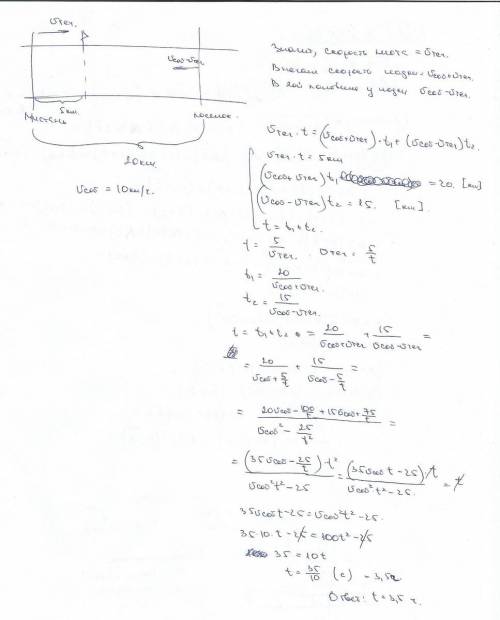 Vтеч.
Vсоб-Vтеч
5км.
пристань
поселок.
20км.
Vсоб = 10км/ч.
Значит, скорость плота = Vтеч.
В начале скорость лодки = Vсоб+Vтеч.
В 2ой половине у лодки Vсоб-Vтеч.
Vтеч · t = (Vсоб+Vтеч) · t₁ + (Vсоб-Vтеч) t₂.
Vтеч · t = 5км
(Vсоб+Vтеч) t₁ = 20. [км]
(Vсоб-Vтеч) t₂ = 15. [км].
t = t₁ + t₂
t = 5/Vтеч. Vтеч = 5/t
t₁ = 20/(Vсоб+Vтеч.)
t₂ = 15/(Vсоб-Vтеч.)
t = t₁ + t₂ = 20/(Vсоб+Vтеч) + 15/(Vсоб-Vтеч) =
= 20/(Vсоб + 5/t) + 15/(Vсоб - 5/t) =
= (20Vсоб - 100/t + 15Vсоб + 75/t)/(Vсоб² - 25/t²) =
= ((35Vсоб - 25/t) · t²)/(Vсоб² t² - 25) = ((35Vсоб t - 25) · t)/(Vсоб² t² - 25.) = t
35Vсоб t - 25 = Vсоб² t² - 25.
35 · 10 · t - 25 = 100t² - 25
35 = 10t
t = 35/10 (с) = 3,5ч
Ответ: t = 3,5 ч.